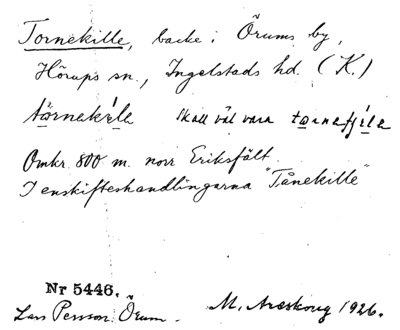 Tornekille, backe i Örums by,
Hörups sn., Ingelstads hd. (K.)
tårnekíle skall väl vara tornefjíle
Omkr. 800 m. norr Eriksfält.
I enskifteshandlingarna "Tånekille"
Nr 5446.
Lars Persson. Örum. M. Areskoug 1926.